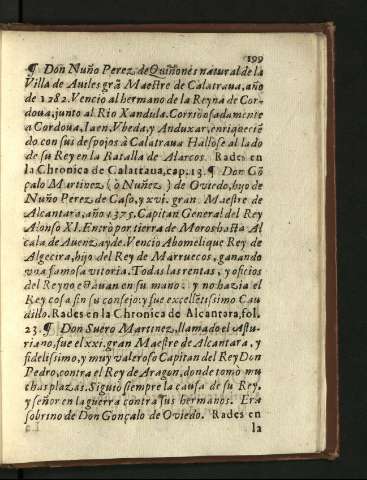 199
¶ Don Nuño Perez de Quiñones natural de la
Villa de Auiles grã Maestre de Calatraua, año
de 1282. Vencio al hermano de la Reyna de Cor-
doua, junto al Rio Xandula. Corrio osadamente
a Cordoua, Iaen, Vbeda, y Anduxar, enriqueciẽ
do con sus despojos à Calatraua Hallose al lado
de su Rey en la Batalla de Alarcos. Rades en
la Chronica de Calatraua, cap. 13. ¶ Don Gõ
çalo Martinez (ò Nuñez) de Ouiedo, hijo de
Nuño Perez de Caso, y xvi. gran Maestre de
Alcantara, año 1375. Capitan General del Rey
Alonso XI. Entrò por tierra de Moros hasta Al
cala de Auenzayde. Vencio Abomelique Rey de
Algecira, hijo del Rey de Marruecos, ganando
vna famosa vitoria. Todas las rentas, y oficios
del Reyno estauan en su mano: y no hazia el
Rey cosa sin su consejo: y fue excellẽtissimo Cau
dillo. Rades en la Chronica de Alcantara, fol.
23. ¶ Don Suero Martinez, llamado el Astu-
riano, fue el xxi. gran Maestre de Alcantara, y
fidelissimo, y muy valeroso Capitan del Rey Don
Pedro, contra el Rey de Aragon, donde tomò mu
chas plazas. Siguiò siempre la causa de su Rey,
y señor en la guerra contra sus hermanos. Era
sobrino de Don Gonçalo de Ouiedo. Rades en
la